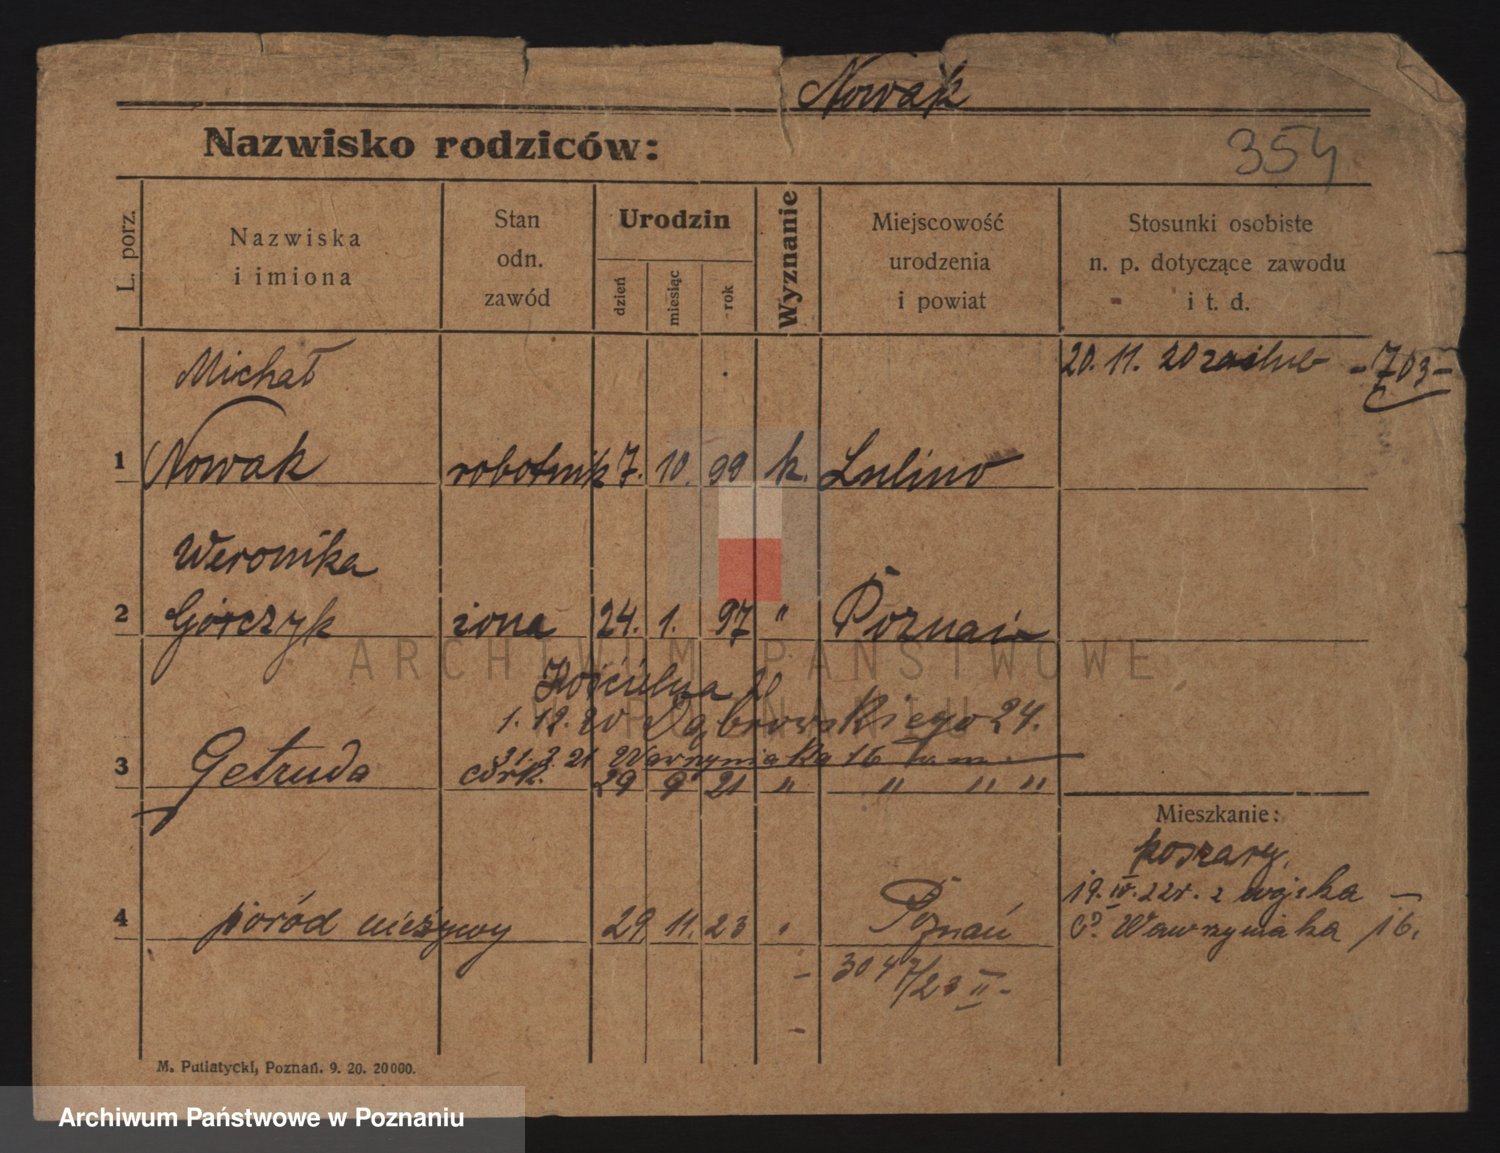 Nowak
Nazwisko rodziców:
354
L. porz.
Nazwiska
i imiona
Stan
odn.
zawód
Urodzin
dzień
miesiąc
rok
Wyznanie
Miejscowość
urodzenia
i powiat
Stosunki osobiste
n. p. dotyczące zawodu
i t. d.
Michał
20. 11. 20 zaślub - 703 -
1 Nowak robotnik 7. 10. 99 k. Lulino
Weronika
2 Górczyk żona 24. 1. 97 " Poznań
Kościelna
1. 12. 20 Dąbrowskiego 24.
21 Wawrzyniaka 16
3 Getruda córk. 29 9 21 " " " "
Mieszkanie:
koszary.
19. IV. 22r. z wojska —
Wawrzyniaka 16.
4 poród nieżywy 29. 11. 23 " Poznań
- 3047/23 II -
-
M. Putiatycki, Poznań. 9. 20. 20000.
ARCHIWUM PAŃSTWOWE
W POZNANIU
Archiwum Państwowe w Poznaniu